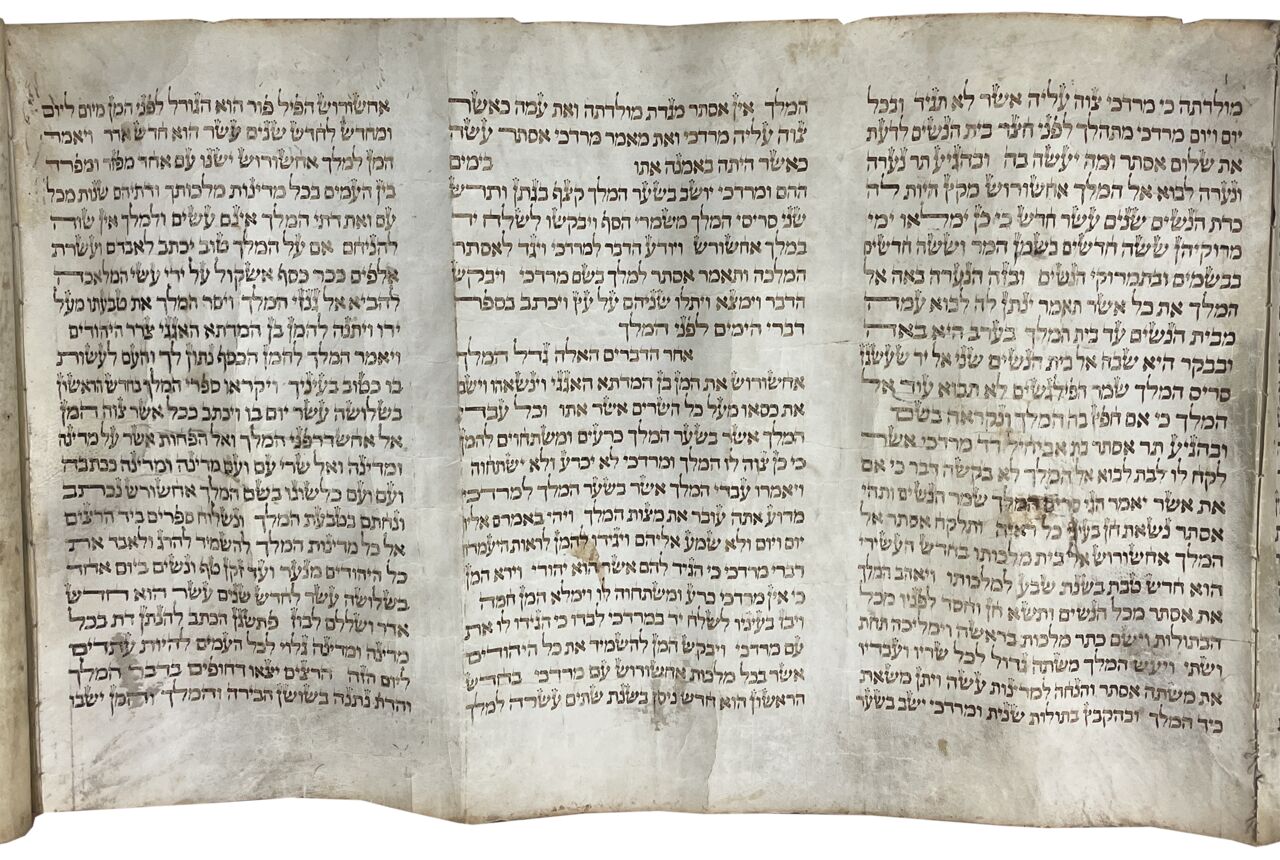 מולדתה כי מרדכי צוה עליה אשר לא תגיד ובכל
יום ויום מרדכי מתהלך לפני חצר בית הנשים לדעת
את שלום אסתר ומה יעשה בה ובהגיע תר נערה
ונערה לבוא אל המלך אחשורוש מקץ היות לה
כדת הנשים שנים עשר חדש כי כן ימלאו ימי
מרוקיהן ששה חדשים בשמן המר וששה חדשים
בבשמים ובתמרוקי הנשים ובזה הנערה באה אל
המלך את כל אשר תאמר ינתן לה לבוא עמה
מבית הנשים עד בית המלך בערב היא באה
ובבקר היא שבה אל בית הנשים שני אל יד שעשגז
סריס המלך שמר הפילגשים לא תבוא עוד אל
המלך כי אם חפץ בה המלך ונקראה בשם
ובהגיע תר אסתר בת אביחיל דד מרדכי אשר
לקח לו לבת לבוא אל המלך לא בקשה דבר כי אם
את אשר יאמר הגי סריס המלך שמר הנשים ותהי
אסתר נשאת חן בעיני כל ראיה ותלקח אסתר אל
המלך אחשורוש אל בית מלכותו בחדש העשירי
הוא חדש טבת בשנת שבע למלכותו ויאהב המלך
את אסתר מכל הנשים ותשא חן וחסד לפניו מכל
הבתולות וישם כתר מלכות בראשה וימליכה תחת
ושתי ויעש המלך משתה גדול לכל שריו ועבדיו
את משתה אסתר והנחה למדינות עשה ויתן משאת
כיד המלך ובהקבץ בתולות שנית ומרדכי ישב בשער
המלך אין אסתר מגדת מולדתה ואת עמה כאשר
צוה עליה מרדכי ואת מאמר מרדכי אסתר עשה
כאשר היתה באמנה אתו בימים
ההם ומרדכי יושב בשער המלך קצף בגתן ותרש
שני סריסי המלך משמרי הסף ויבקשו לשלח יד
במלך אחשורש ויודע הדבר למרדכי ויגד לאסתר
המלכה ותאמר אסתר למלך בשם מרדכי ויבקש
הדבר וימצא ויתלו שניהם על עץ ויכתב בספר
דברי הימים לפני המלך
אחר הדברים האלה גדל המלך
אחשורוש את המן בן המדתא האגגי וינשאהו וישם
את כסאו מעל כל השרים אשר אתו וכל עבדי
המלך אשר בשער המלך כרעים ומשתחוים להמן
כי כן צוה לו המלך ומרדכי לא יכרע ולא ישתחוה
ויאמרו עבדי המלך אשר בשער המלך למרדכי
מדוע אתה עובר את מצות המלך ויהי באמרם אליו
יום ויום ולא שמע אליהם ויגידו להמן לראות היעמדו
דברי מרדכי כי הגיד להם אשר הוא יהודי וירא המן
כי אין מרדכי כרע ומשתחוה לו וימלא המן חמה
ויבז בעיניו לשלח יד במרדכי לבדו כי הגידו לו את
עם מרדכי ויבקש המן להשמיד את כל היהודים
אשר בכל מלכות אחשורוש עם מרדכי בחדש
הראשון הוא חדש ניסן בשנת שתים עשרה למלך
אחשורוש הפיל פור הוא הגורל לפני המן מיום ליום
ומחדש לחדש שנים עשר הוא חדש אדר ויאמר
המן למלך אחשורוש ישנו עם אחד מפזר ומפרד
בין העמים בכל מדינות מלכותך ודתיהם שנות מכל
עם ואת דתי המלך אינם עשים ולמלך אין שוה
להניחם אם על המלך טוב יכתב לאבדם ועשרת
אלפים ככר כסף אשקול על ידי עשי המלאכה
להביא אל גנזי המלך ויסר המלך את טבעתו מעל
ידו ויתנה להמן בן המדתא האגגי צרר היהודים
ויאמר המלך להמן הכסף נתון לך והעם לעשות
בו כטוב בעיניך ויקראו ספרי המלך בחדש הראשון
בשלושה עשר יום בו ויכתב ככל אשר צוה המן
אל אחשדרפני המלך ואל הפחות אשר על מדינה
ומדינה ואל שרי עם ועם מדינה ומדינה ככתבה
ועם ועם כלשונו בשם המלך אחשורש נכתב
ונחתם בטבעת המלך ונשלוח ספרים ביד הרצים
אל כל מדינות המלך להשמיד להרג ולאבד את
כל היהודים מנער ועד זקן טף ונשים ביום אחד
בשלושה עשר לחדש שנים עשר הוא חדש
אדר ושללם לבוז פתשגן הכתב להנתן דת בכל
מדינה ומדינה גלוי לכל העמים להיות עתדים
ליום הזה הרצים יצאו דחופים בדבר המלך
והדת נתנה בשושן הבירה והמלך והמן ישבו